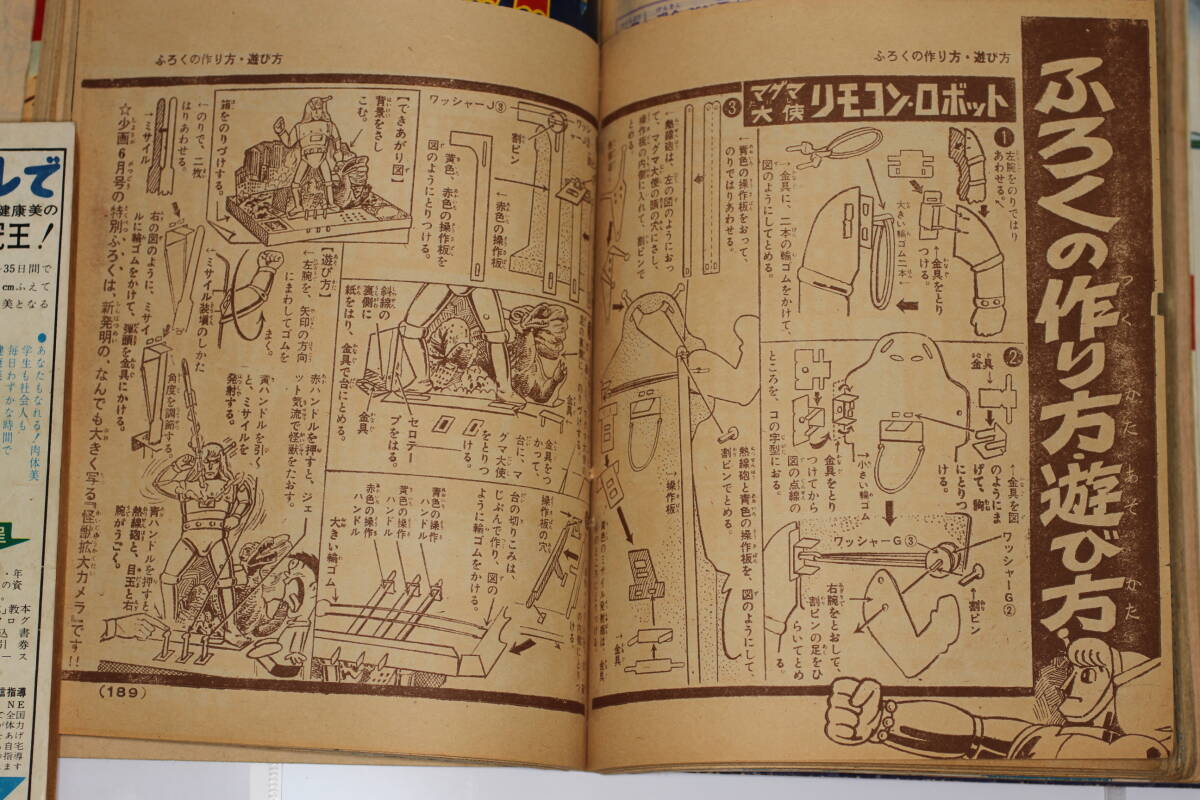 ふろくの作り方・遊び方
ふろくの作り方・遊び方
つくりかたあそびかた
マグマ大使
リモコン・ロボット
①
左腕をのりではり
あわせる。
←金具をとり
つける。
大きい輪ゴム二本←
→金具に、二本の輪ゴムをかけて、
図のようにしてとめる。
②
金具→
↑金具を図
のようにま
げて、胸
にとりつ
ける。
→小さい輪ゴム
金具をとり
つけてから
図の点線の
ところを、コの字型におる。
ワッシャーG②
ワッシャーG③
↑割ピン
右腕をとおして、
割ピンの足をひ
らいてとめ
る。
③
←黄色の操作板をおって、
のりではりあわせる。
←熱線砲は、左の図のようにおっ
て、マグマ大使の頭の穴にさし、
操作板の内側に入れて、割ピンで
とめる。
→操作板
熱線砲と青色の操作板を、図のようにして
割ピンでとめる。
→金具
ふろくの作り方・遊び方
ワッシャーJ③
割ピン
←赤色の操作板
黄色、赤色の操作板を
図のようにとりつける。
【できあがり図】
背景をさし
こむ。
箱をのりづけする。
斜線の
裏側に
紙をはり、金具で台にとめる。
金具
金具←
セロテー
プをはる。
金具をつ
かって、
台に、マ
グマ大使
をとりつ
ける。
操作板の穴
台の切りこみは、
じぶんで作り、図の
ように輪ゴムをかける。
青色の操作
ハンドル
黄色の操作
ハンドル
赤色の操作
ハンドル
大きい輪ゴム
【遊び方】
←左腕を、矢印の方向
にまわしてゴムを
まく。
赤ハンドルを押すと、ジェ
ット気流で怪獣をたおす。
黄ハンドルを引く
と、ミサイルを
発射する。
青ハンドルを押すと、
熱線砲と、目玉と右
腕がうごく。
←ミサイル
←のりで、二枚
はりあわせる。
←ミサイル装填のしかた
右の図のように、ミサイ
ルに輪ゴムをかけて、弾頭を金具にかける。
角度を調節する。
☆少画6月号の特別ふろくは、新発明の、なんでも大きく写る『怪獣拡大カメラ』です!!
(189)
健康美の
王!
35日間で
cmふえて
美となる
●あなたもなれる!肉体美
学生も社会人も
毎日わずかな時間で